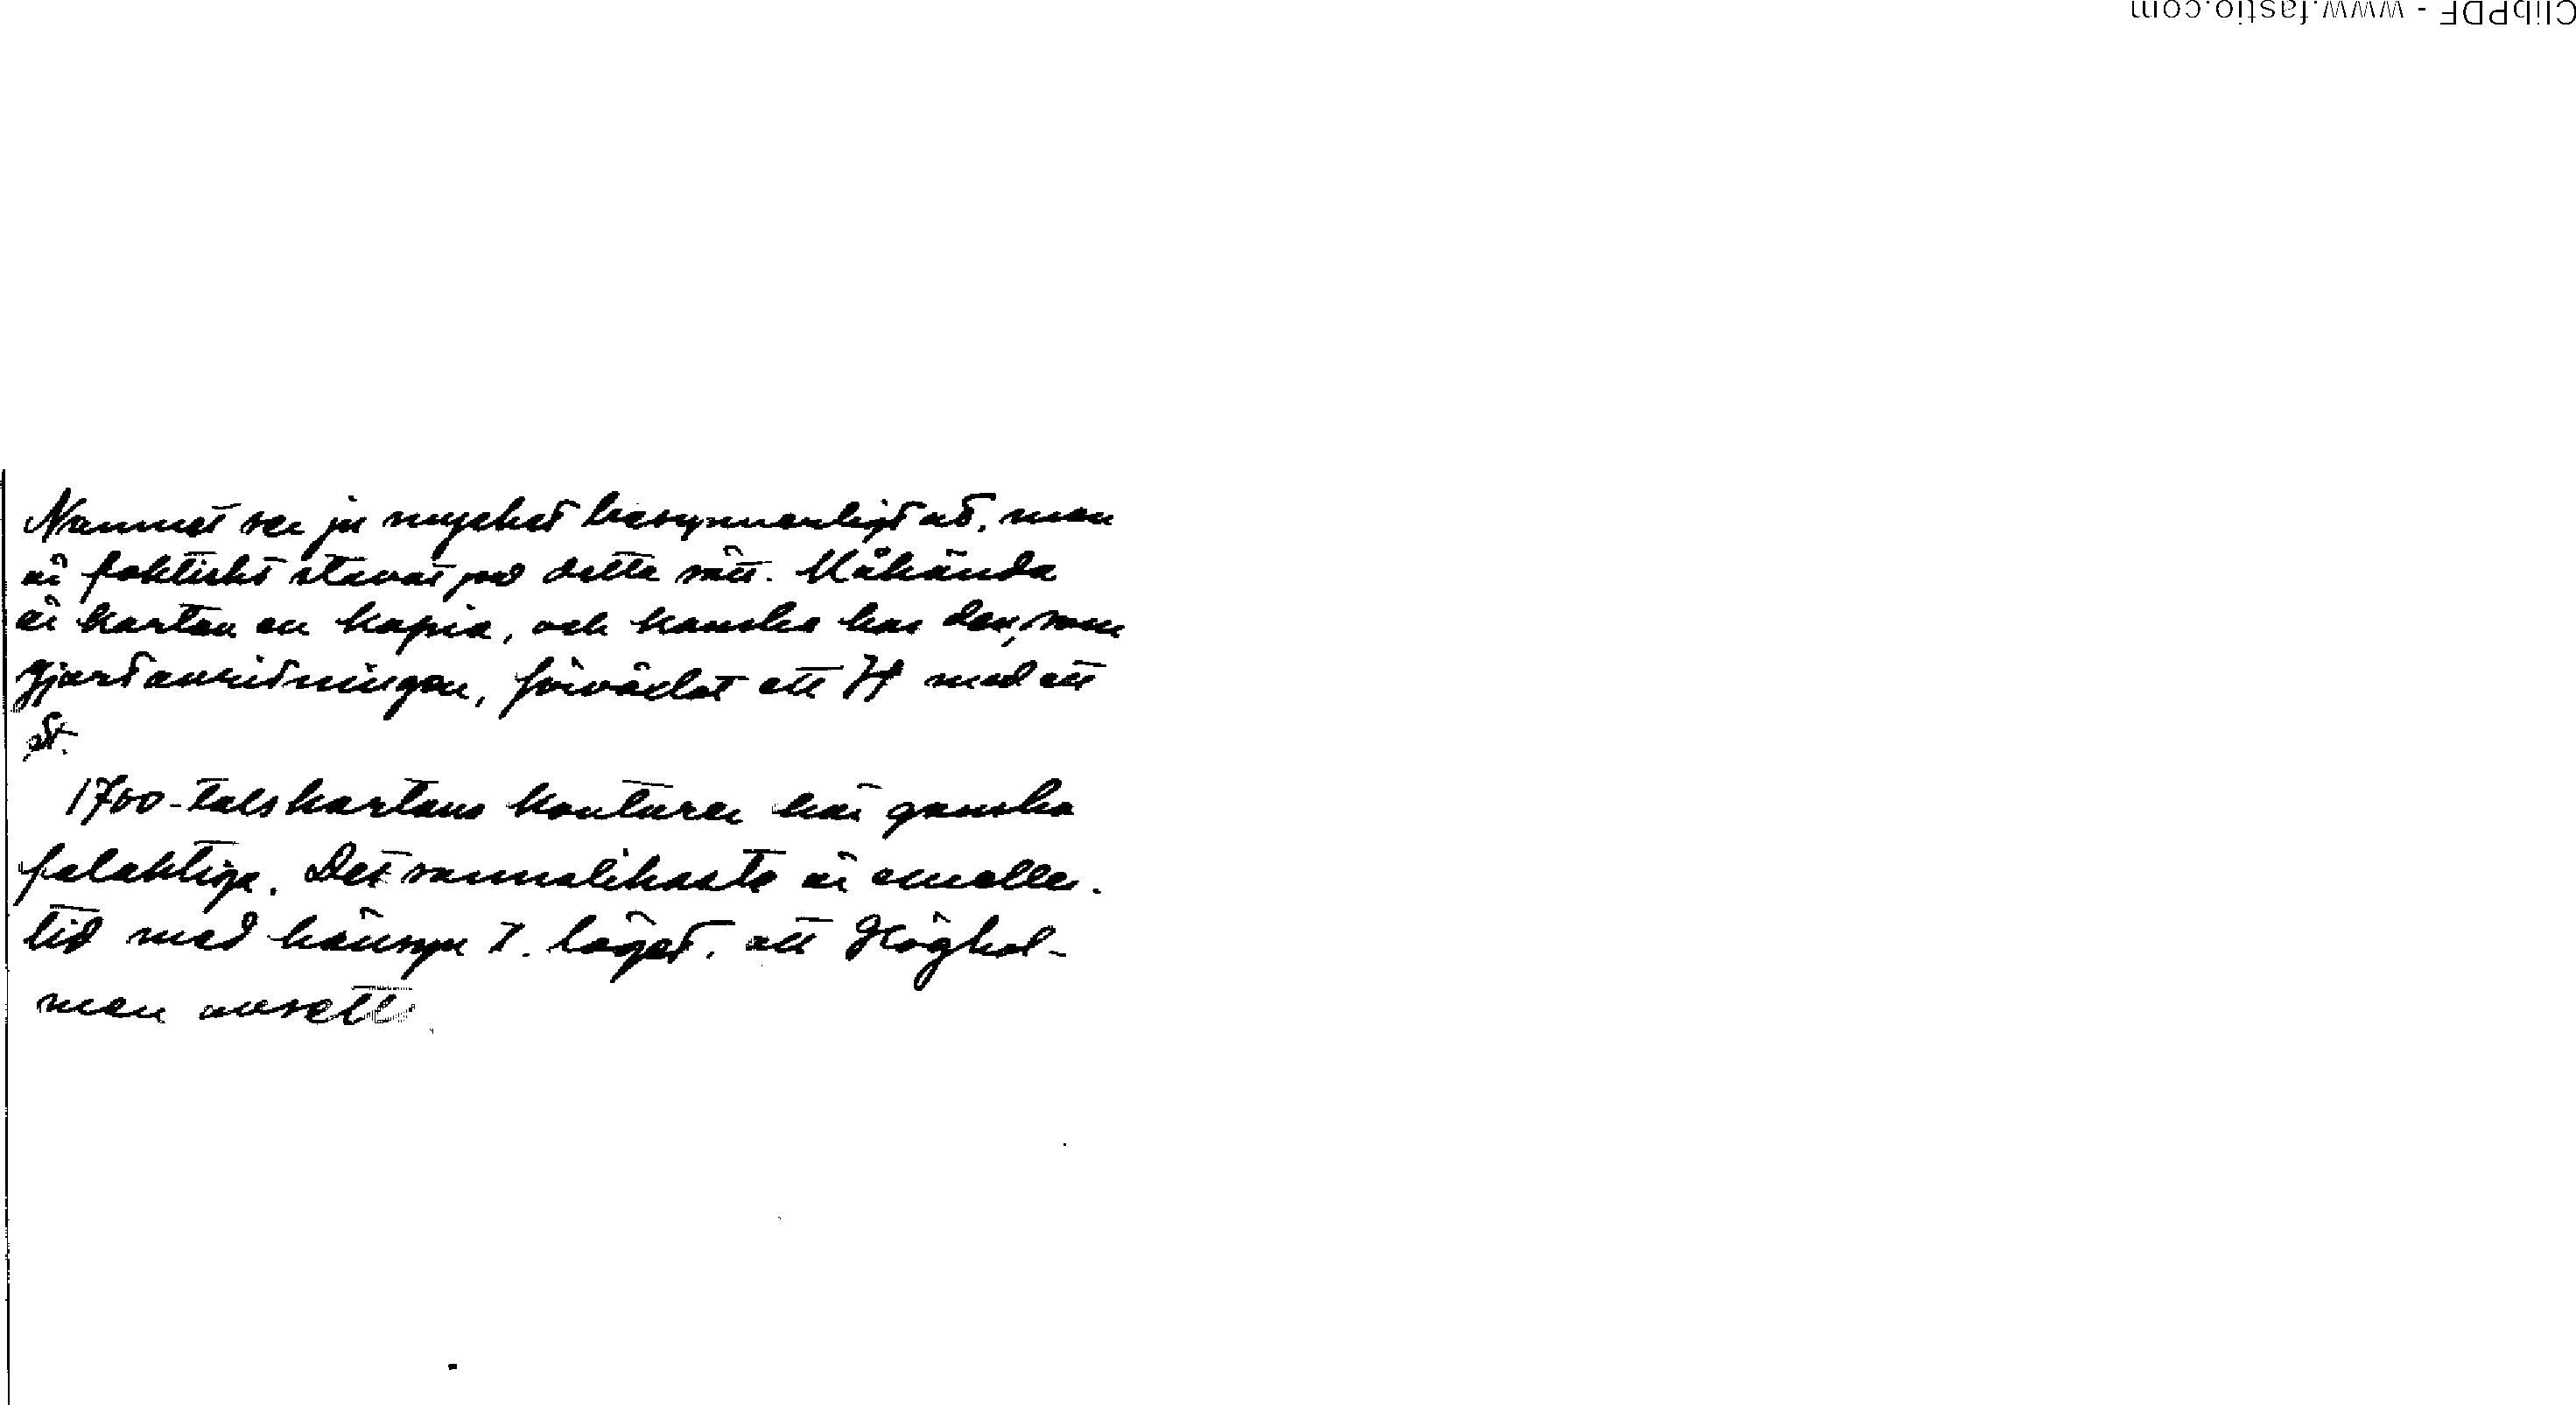 Namnet ser ju mycket besynnerligt ut, men
är faktiskt stavat på detta sätt. Måhända
är kartan en kopia, och kanske har den, som
gjort avritningen, förväxlat ett H med ett
St.
1700-talskartans konturer här ganska
felaktiga. Det sannolikaste är emeller-
tid med hänsyn t. läget, att Höghol-
men avsetts.
ClibPDF - www.fastio.com